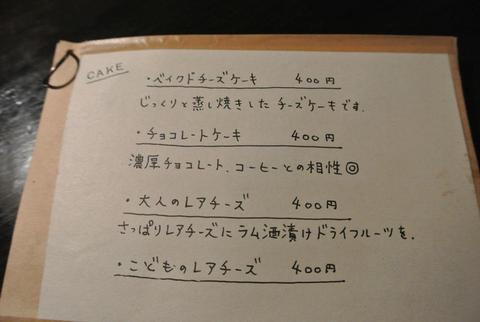 CAKE
・ベイクドチーズケーキ 400円
じっくりと蒸し焼きした チーズケーキです.
・チョコレートケーキ 400円
濃厚チョコレート、コーヒーとの相性◎
・大人のレアチーズ 400円
さっぱりレアチーズにラム酒漬けドライフルーツを.
・こどものレアチーズ 400円